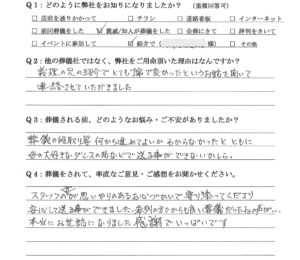 Q1：どのように弊社をお知りになりましたか？（重複回答可）
□ 店前を通りかかって □ チラシ □ 道路看板 □ インターネット
□ 前回葬儀をした ☑ 親戚/知人が葬儀した □ 会葬にきて □ 評判をきいて
□ イベントに参加して ☑ 紹介で（ 様） □ その他
Q2：他の葬儀社ではなく、弊社をご用命頂いた理由はなんですか？
義理の兄の紹介でとても 良かったというお話を聞いて
連絡させていただきました
Q3：葬儀される前、どのようなお悩み・ご不安がありましたか？
葬儀の段取り等 何から進めてよいか わからなかったと ともに
母の大好きなダンスの曲などで送る事ができないかしら。
Q4：葬儀をされて、率直なご意見・ご感想をお聞かせください。
スタッフの 方が思いやりのあるお心づかいで寄り添ってくださり
安心して送る事ができました。参列の方々からも良い葬儀だったねの声が…
本当にお世話になりました 感謝でいっぱいです